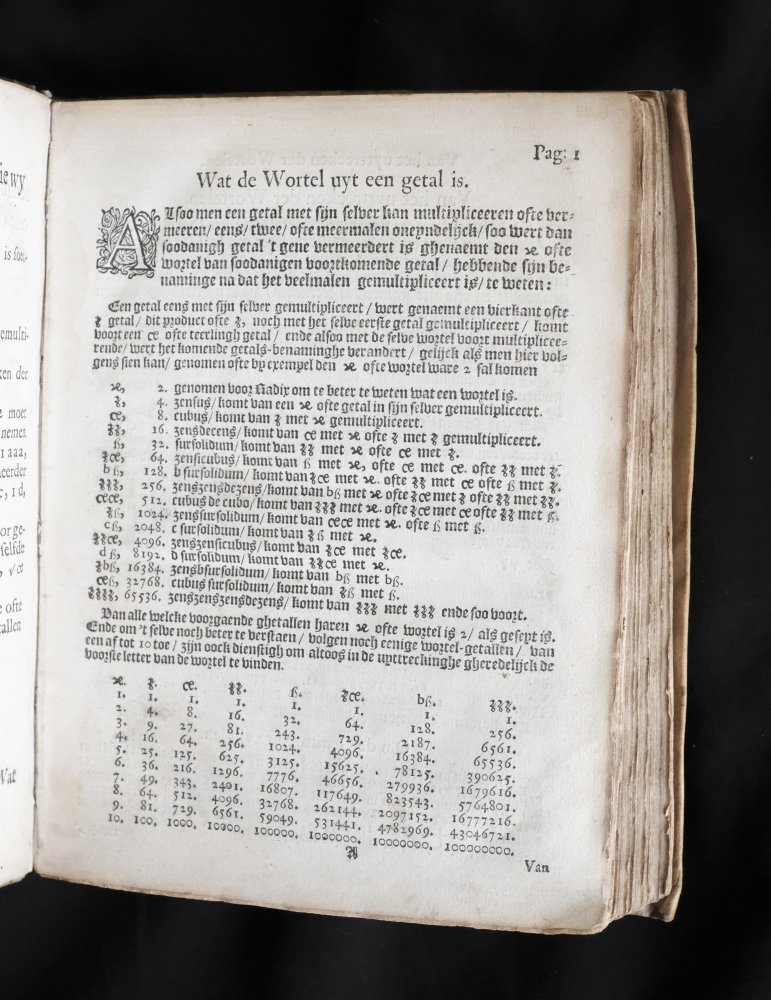 Pag: 1
Wat de Wortel uyt een getal is.
ALsoo men een getal met sijn selver kan multipliceeren ofte ver-
meeren/ eens/ twee/ ofte meermalen oneyndelijck/ soo wert dan
soodanigh getal 't gene vermeerdert is ghenaemt den ꝛe ofte
wortel van soodanigen voortkomende getal/ hebbende sijn be-
naminge na dat het veelmalen gemultipliceert is/ te weten:
Een getal eens met sijn selver gemultipliceert/ wert genaemt een vierkant ofte
ʒ getal/ dit product ofte ʒ, noch met het selve eerste getal gemultipliceert/ komt
voort een ce ofte teerlingh getal/ ende alsoo met de selve wortel voort multiplicee-
rende/ wert het komende getals-benaminghe verandert/ gelijck als men hier vol-
gens sien kan/ genomen ofte by exempel den ꝛe ofte wortel ware 2 sal komen
ꝛe, 2. genomen voor Radix om te beter te weten wat een wortel is.
ʒ, 4. zensus/ komt van een ꝛe ofte getal in sijn selver gemultipliceert.
ce, 8. cubus/ komt van ʒ met ꝛe gemultipliceert.
ʒʒ, 16. zensdecens/ komt van ce met ꝛe ofte ʒ met ʒ gemultipliceert.
ß, 32. sursolidum/ komt van ʒʒ met ꝛe ofte ce met ʒ.
ʒce, 64. zensicubus/ komt van ß met ꝛe, ofte ce met ce. ofte ʒʒ met ʒ.
bß, 128. b sursolidum/ komt van ʒce met ꝛe. ofte ʒʒ met ce ofte ß met ʒ.
ʒʒʒ, 256. zenszensdezens/ komt van bß met ꝛe ofte ʒce met ʒ ofte ʒʒ met ʒʒ.
cece, 512. cubus de cubo/ komt van ʒʒʒ met ꝛe. ofte ʒce met ce ofte ʒʒ met ß.
ʒß, 1024. zenssursolidum/ komt van cece met ꝛe. ofte ß met ß.
cß, 2048. c sursolidum/ komt van ʒß met ꝛe.
ʒʒce, 4096. zenszensicubus/ komt van ʒce met ʒce.
dß, 8192. d sursolidum/ komt van ʒʒce met ꝛe.
ʒbß, 16384. zensbsursolidum/ komt van bß met bß.
ceß, 32768. cubus sursolidum/ komt van ʒß met ß.
ʒʒʒʒ, 65536. zenszenszensdezens/ komt van ʒʒʒ met ʒʒʒ ende soo voort.
Van alle welcke voorgaende ghetallen haren ꝛe ofte wortel is 2/ als geseyt is.
Ende om 't selve noch beter te verstaen/ volgen noch eenige wortel-getallen/ van
een af tot 10 toe/ zijn oock dienstigh om altoos in de uyttreckinghe gheredelijck de
voorste letter van de wortel te vinden.
ꝛe. ʒ. ce. ʒʒ. ß. ʒce. bß. ʒʒʒ.
1. 1. 1. 1. 1. 1. 1. 1.
2. 4. 8. 16. 32. 64. 128. 256.
3. 9. 27. 81. 243. 729. 2187. 6561.
4. 16. 64. 256. 1024. 4096. 16384. 65536.
5. 25. 125. 625. 3125. 15625. 78125. 390625.
6. 36. 216. 1296. 7776. 46656. 279936. 1679616.
7. 49. 343. 2401. 16807. 117649. 823543. 5764801.
8. 64. 512. 4096. 32768. 262144. 2097152. 16777216.
9. 81. 729. 6561. 59049. 531441. 4782969. 43046721.
10. 100. 1000. 10000. 100000. 1000000. 10000000. 100000000.
A
Van